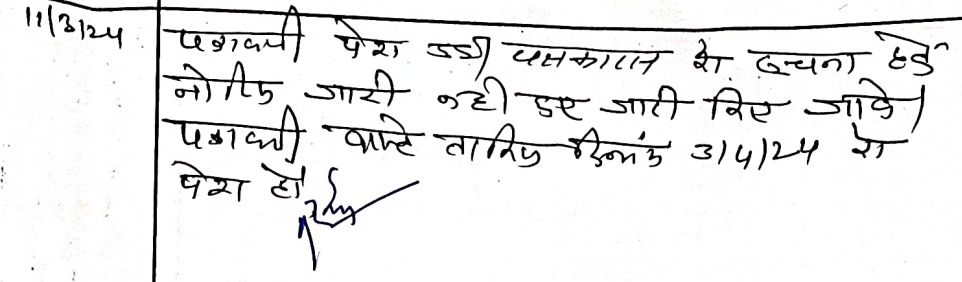 11/3/24
पत्रावली पेश हुई पक्षकारान को सूचना हेतु
नोटिस जारी नही हुए जारी किए जावे।
पत्रावली वास्ते तामिल दिनांक 3/4/24 को
पेश हो